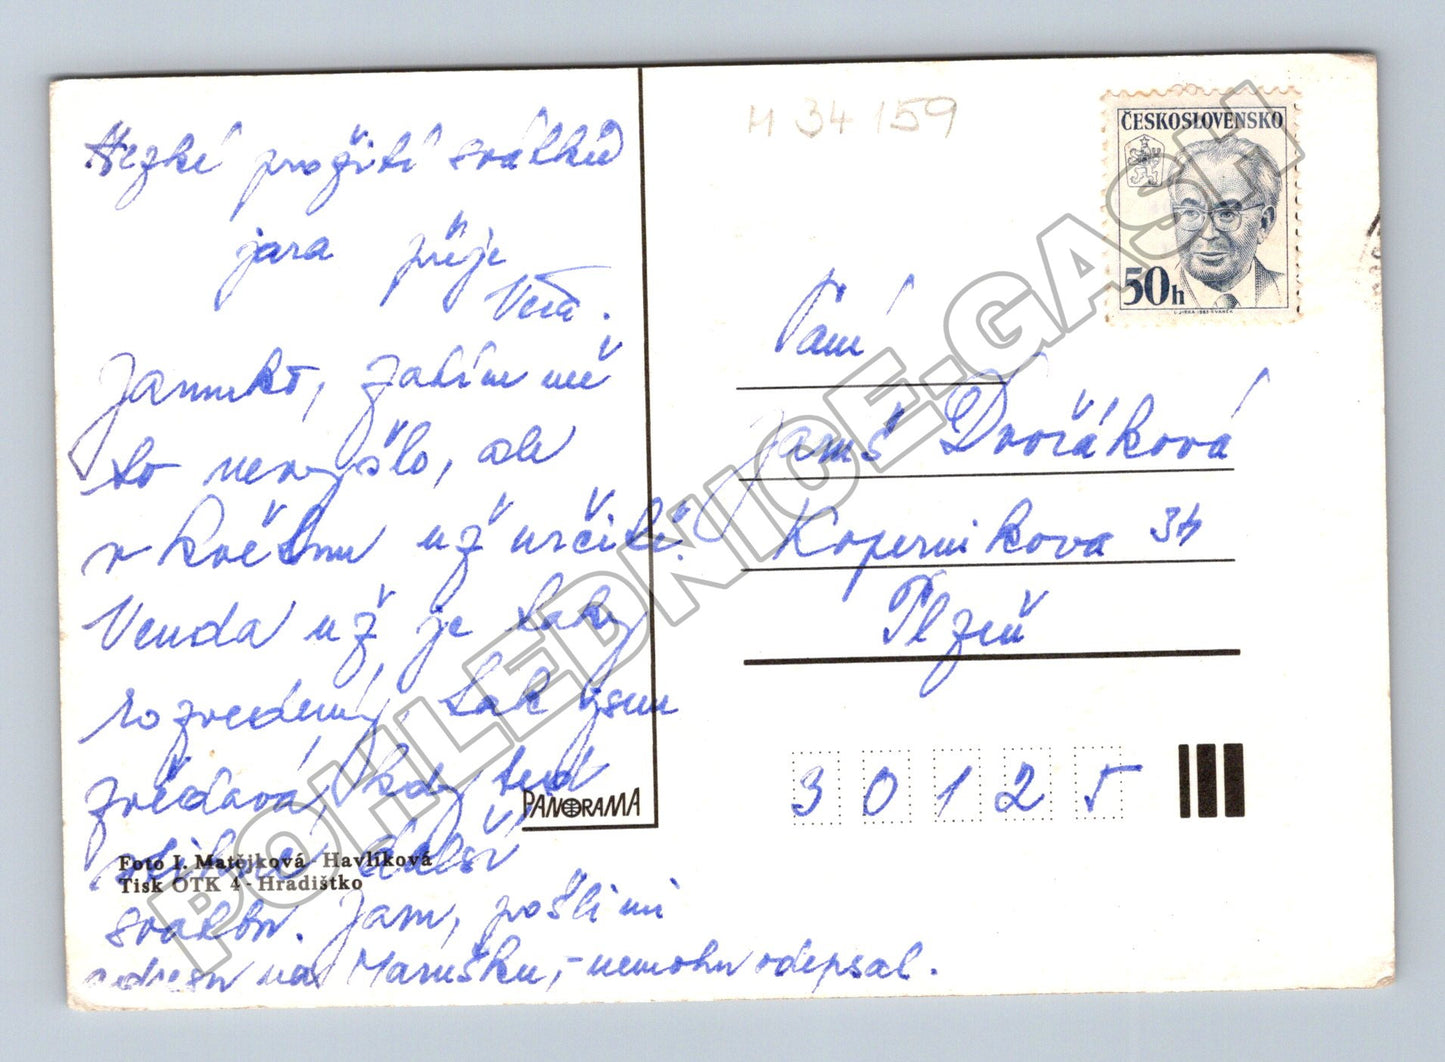 Hezké prožití svátků
jara přeje
Věra.
Jarunko, zatím mě
to nevyšlo, ale
v květnu už určitě.
Venda už je taky
rozvedený, tak jsem
zvědavá, kdy teď
stihne další
svatbu. Jaru, pošli mi
adresu na Marušku, - nemohu odepsal.
PANORAMA
Foto I. Matějková - Havlíková
Tisk OTK 4 - Hradištko
H 34 159
ČESKOSLOVENSKO
50h
Paní
Dvořáková
Koperníkova 34
Plzeň
3 0 1 2 5
POHLEDNICE.GASH